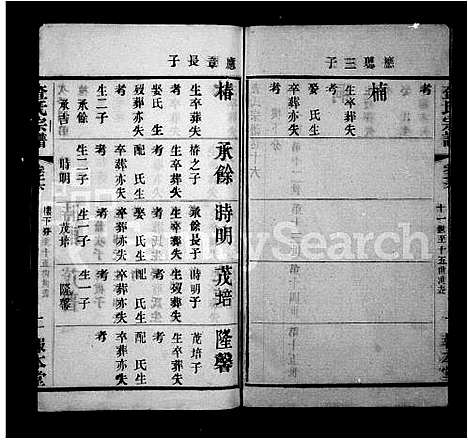 應聰三子
楠
生卒葬失
考
娶氏生
卒葬亦失
考
十一世至十五世世表
應章長子
椿
生卒葬失
考
娶氏生
歿葬亦失
考
生一子
承餘
承餘
椿之子
生卒葬失
考
配氏生
卒葬亦失
考
生二子
時明
時明
承餘長子
生卒葬失
考
配氏生
卒葬亦失
考
生一子
茂培
茂培
時明子
生歿葬失
考
配氏生
卒葬亦失
考
生一子
隆馨
隆馨
茂培子
生卒葬失
考
配氏生
卒葬亦失
考
氏宗譜
樓下分
十五世世表
二
MySearch